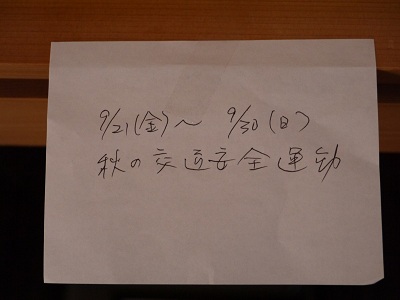 9/21(金)～ 9/30(日)
秋の交通安全運動